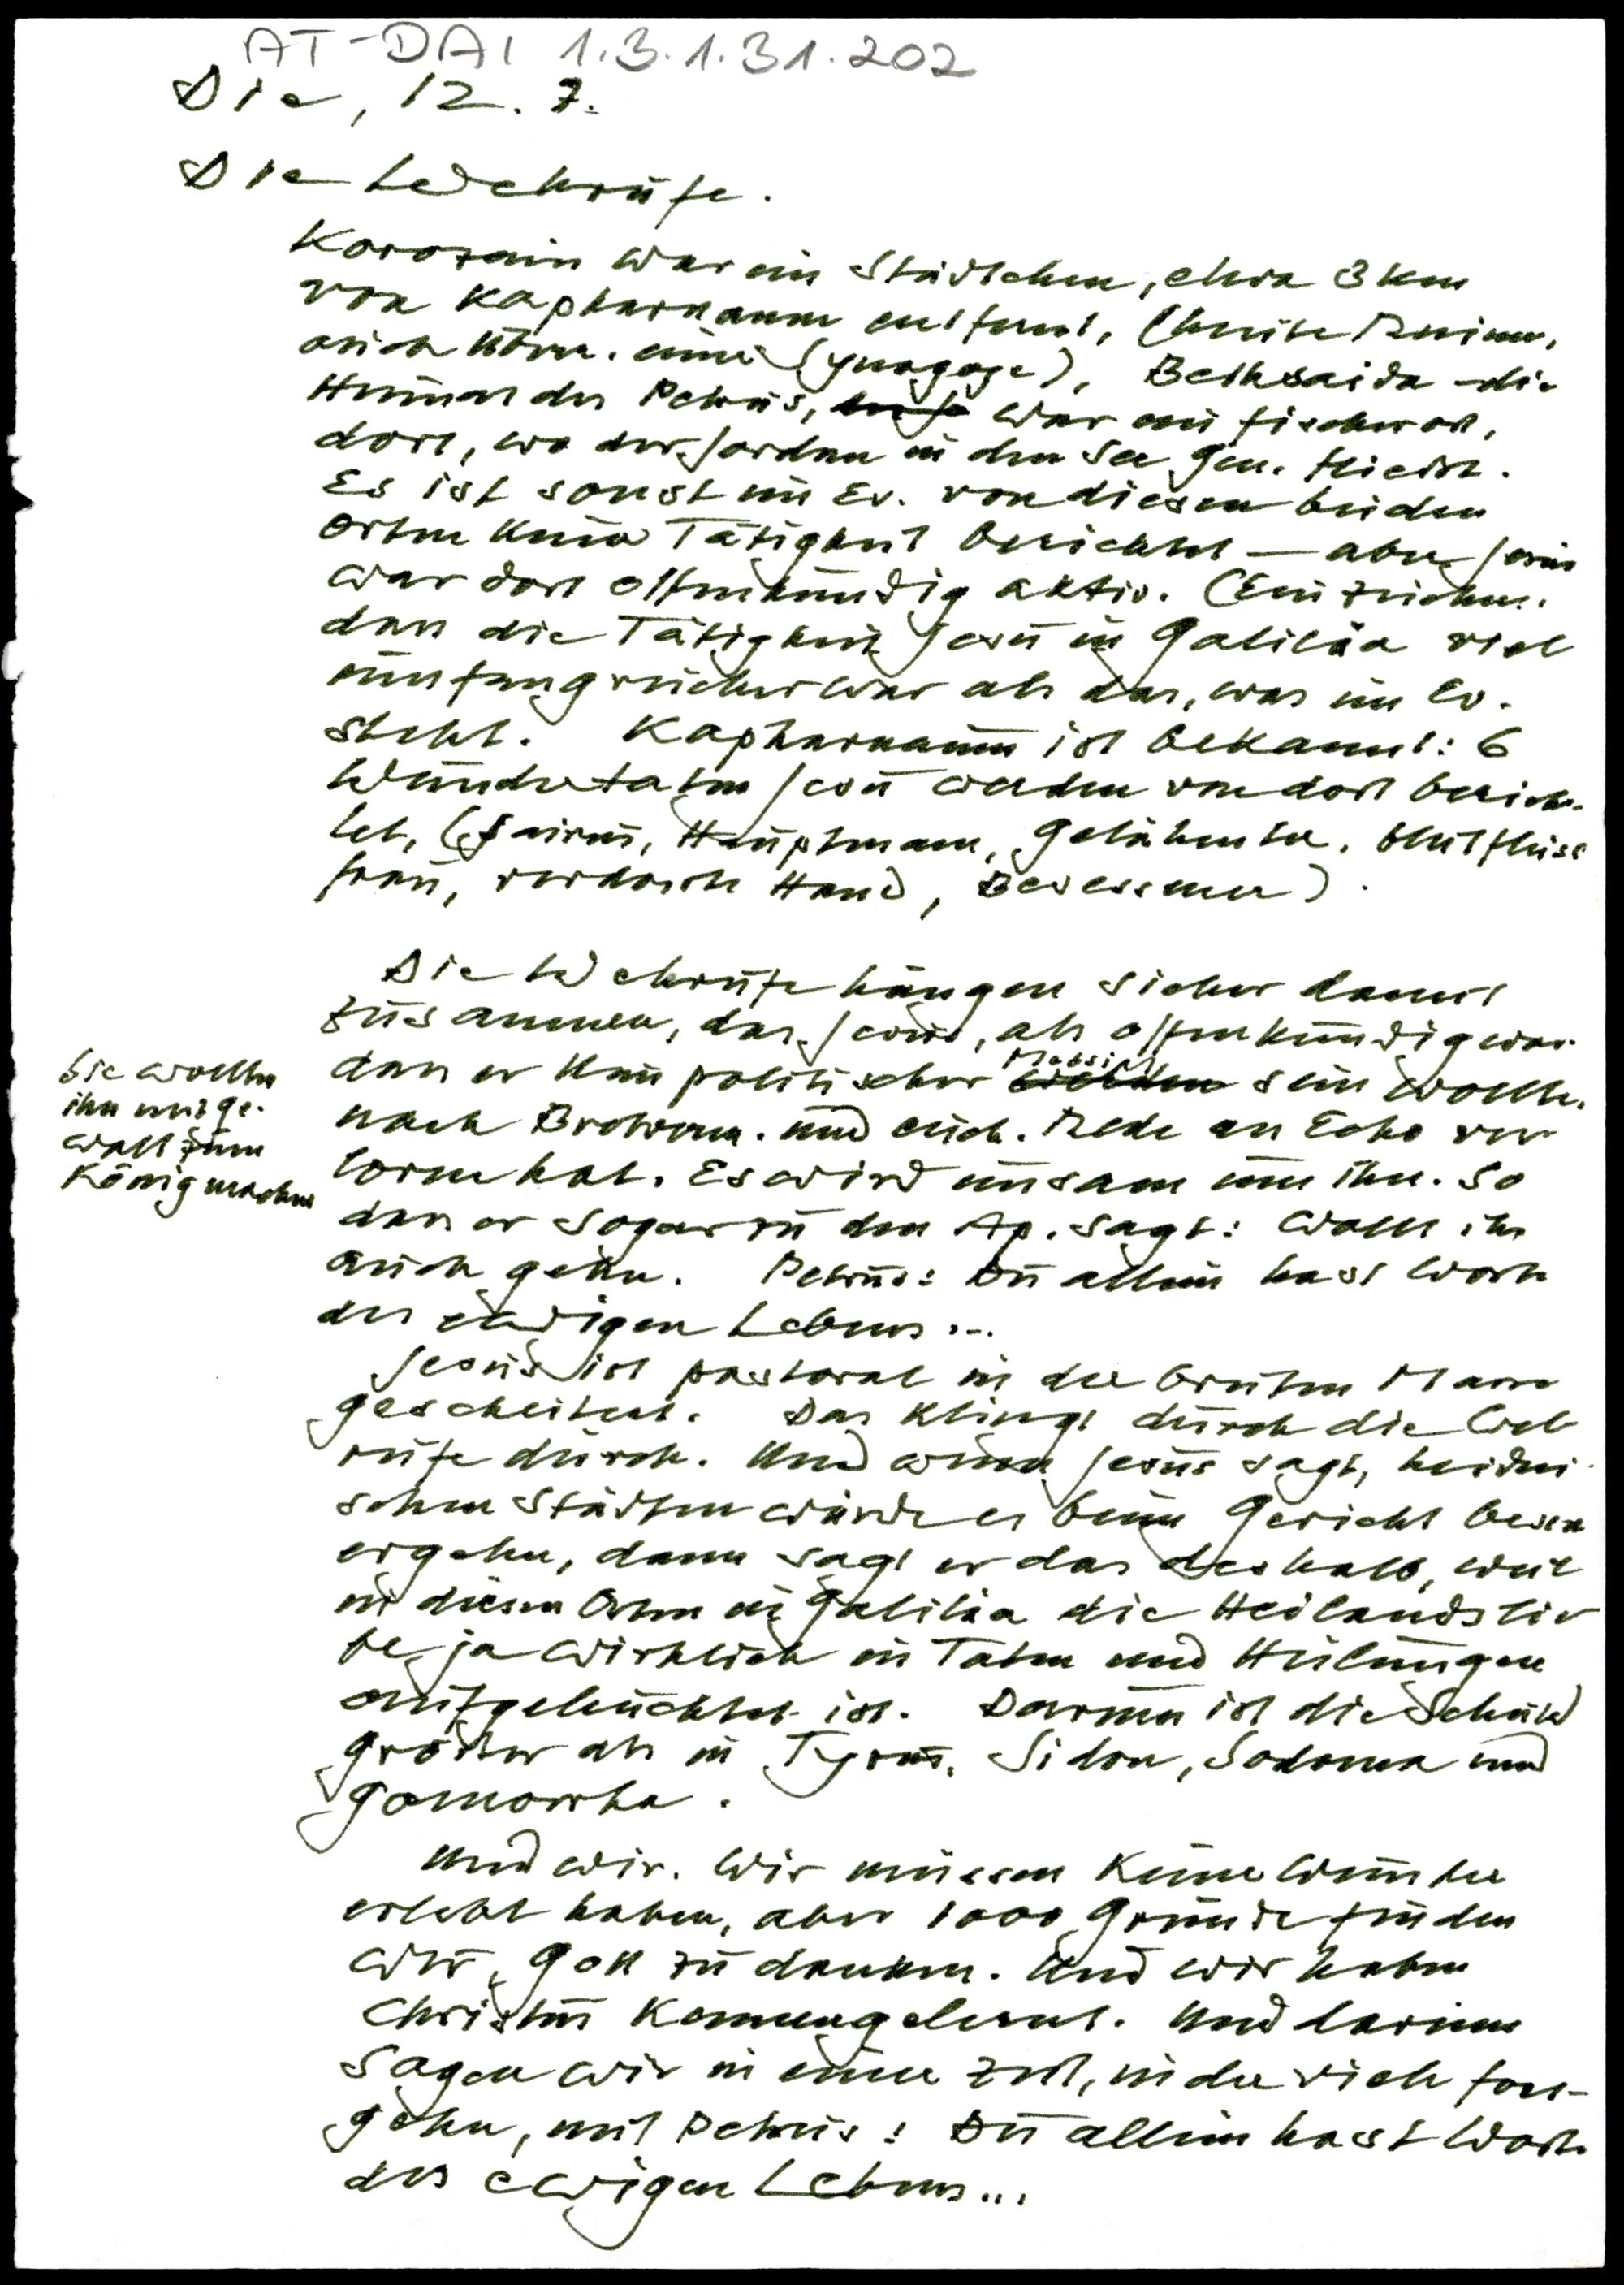 AT-DAI 1.3.1.31.202
Die, 12. 7.
Die Wehrufe.
Korozain war ein Städtchen, etwa 3 km
von Kapharnaum entfernt, (heute Ruinen,
auch röm. einer Synagoge), Bethsaida - die
Heimat des Petrus, war ein Fischerort,
dort, wo der Jordan in den See Gen. fließt.
Es ist sonst im Ev. von diesen beiden
Orten keine Tätigkeit berichtet — aber Jesus
war dort offenkundig aktiv. (Ein Zeichen,
dass die Tätigkeit Jesu in Galiläa viel
umfangreicher war als das, was im Ev.
steht. Kapharnaum ist bekannt: 6
Wundertaten Jesu werden von dort berich-
tet, (Jairus, Hauptmann, Gelähmter, Blutfluss
frau, verdorrte Hand, Besessener).
Die Wehrufe hängen sicher damit
zusammen, dass Jesus, als offenkundig war
dass er kein politischer Messias sein wollte,
nach Brotverm. und euch. Rede an Echo ver
loren hat. Es wird einsam um ihn. So
dass er sogar zu den Ap. sagt: Wollt ihr
auch gehn. Petrus: Du allein hast Worte
des ewigen Lebens...
Sie wollten
ihn mit Ge-
walt zum
König machen
Jesus ist pastoral in der breiten Masse
gescheitert. Das klingt durch die Weh
rufe durch. Und wenn Jesus sagt, heidni-
schen Städten würde es beim Gericht besser
ergehen, dann sagt er das deshalb, weil
in diesen Orten in Galiläa die Heilandslie
be ja wirklich in Taten und Heilungen
aufgeleuchtet ist. Darum ist die Schuld
größer als in Tyrus, Sidon, Sodoma und
Gomorrha.
Und wir. Wir müssen keine Wunder
erlebt haben, aber 1000 Gründe finden
wir, Gott zu danken. Und wir haben
Christus kennengelernt. Und darum
sagen wir in einer Zeit, in der viele fort-
gehn, mit Petrus: Du allein hast Worte
des ewigen Lebens...